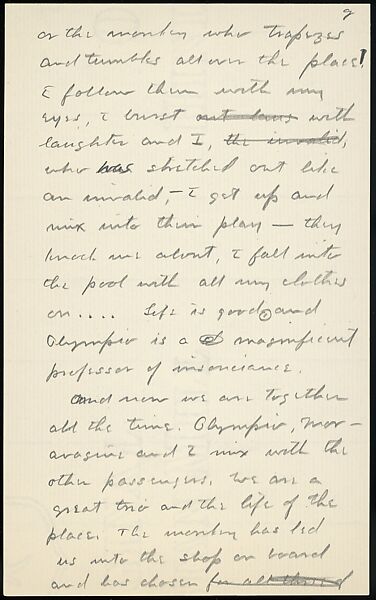 9
or the monkey who trapezes
and tumbles all over the place!
I follow them with my
eyes, I burst out laus with
laughter and I, the invalid,
who was stretched out like
an invalid, – I get up and
mix into their play — they
knock me about, I fall into
the pool with all my clothes
on.... Life is good, and
Olympio is a magnificent
professor of insonciance.
And now we are together
all the time. Olympio, Mor-
avagine and I mix with the
other passengers. We are a
great trio and the life of the
place. The monkey has led
us into the shop on board
and has chosen for all three